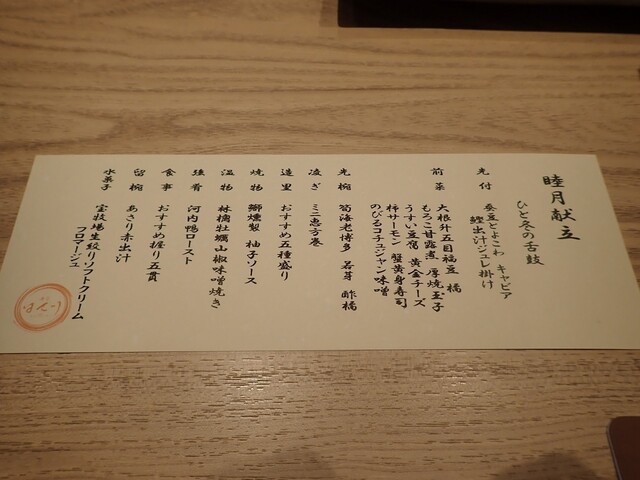 睦月献立
ひと冬の舌鼓
先付 蚕豆とよこわ キャビア
鰹出汁ジュレ掛け
前菜 大根升五目福豆 橘
もろこ甘露煮 厚焼玉子
うすい豆腐 黄金チーズ
柿サーモン 蟹黄身寿司
のびるコチュジャン味噌
先椀 筍海老博多 若芽 酢橘
凌ぎ ミニ恵方巻
造里 おすすめ五種盛り
焼物 鰤燻製 柚子ソース
温物 林檎牡蠣山椒味噌焼き
強肴 河内鴨ロースト
食事 おすすめ握り五貫
留椀 あさり赤出汁
水菓子 宝牧場生絞りソフトクリーム
フロマージュ